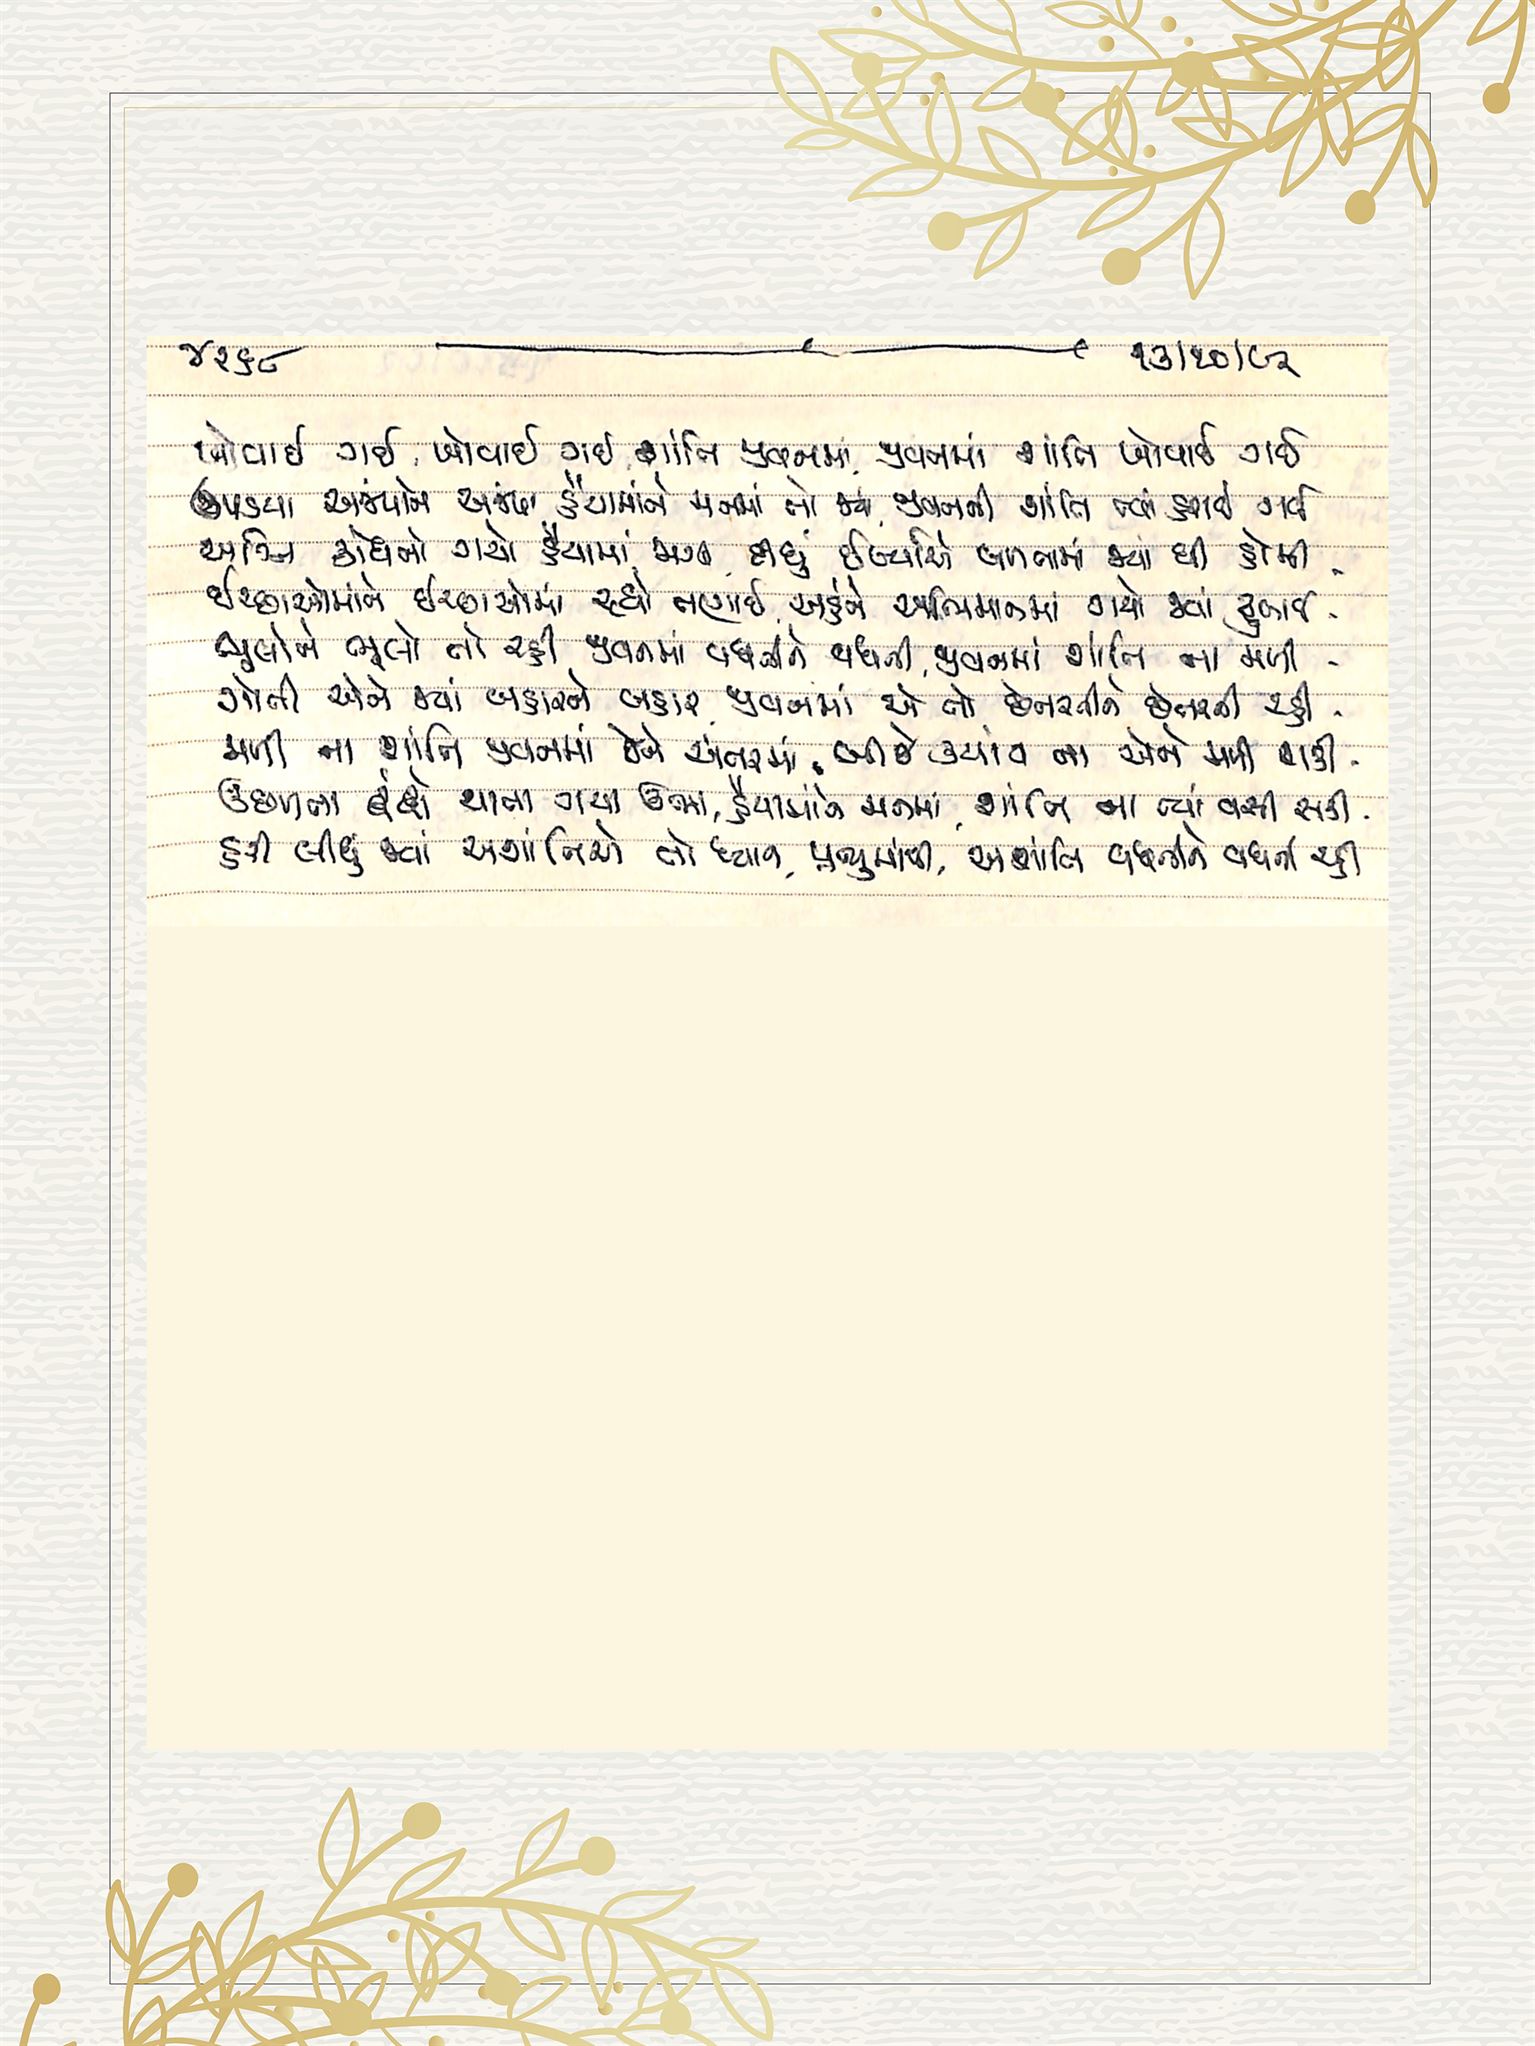 ૪૨૬૮ ૧૩/૧૦/૯૨
ખોવાઈ ગઈ, ખોવાઈ ગઈ, શાંતિ જીવનમાં, જીવનમાં શાંતિ ખોવાઈ ગઈ
ઉપડયા અજંપાને અજંપા હૈયામાંને મનમાં તો જ્યાં, જીવનની શાંતિ ત્યાં હરાઈ ગઈ
અગ્નિ ક્રોધનો ગયો હૈયામાં, દીધું ઈર્ષ્યાએ બળતામાં જ્યાં ઘી હોમી.
ઈચ્છાઓમાંને ઈચ્છાઓમાં રહ્યો તણાઈ, અહંને અભિમાનમાં ગયો જ્યાં
ભૂલોને ભૂલો તો રહી જીવનમાં વધતીને વધતી, જીવનમાં શાંતિ ના મળી.
ગોતી એને જ્યાં બહારને બહાર, જીવનમાં એ તો છેતરતીને છેતરતી રહી.
મળી ના શાંતિ જીવનમાં જેને અંતરમાં, બીજે ક્યાંય ના એને મળી શકી.
ઉછળતા દ્વંદ્વો થાતા ગયા ઉભા, હૈયામાંને મનમાં, શાંતિ ના ત્યાં વસી શકી.
હરી લીધું જ્યાં અશાંતિએ તો ધ્યાન, પ્રભુમાંથી, અશાંતિ વધતીને વધતી રહી